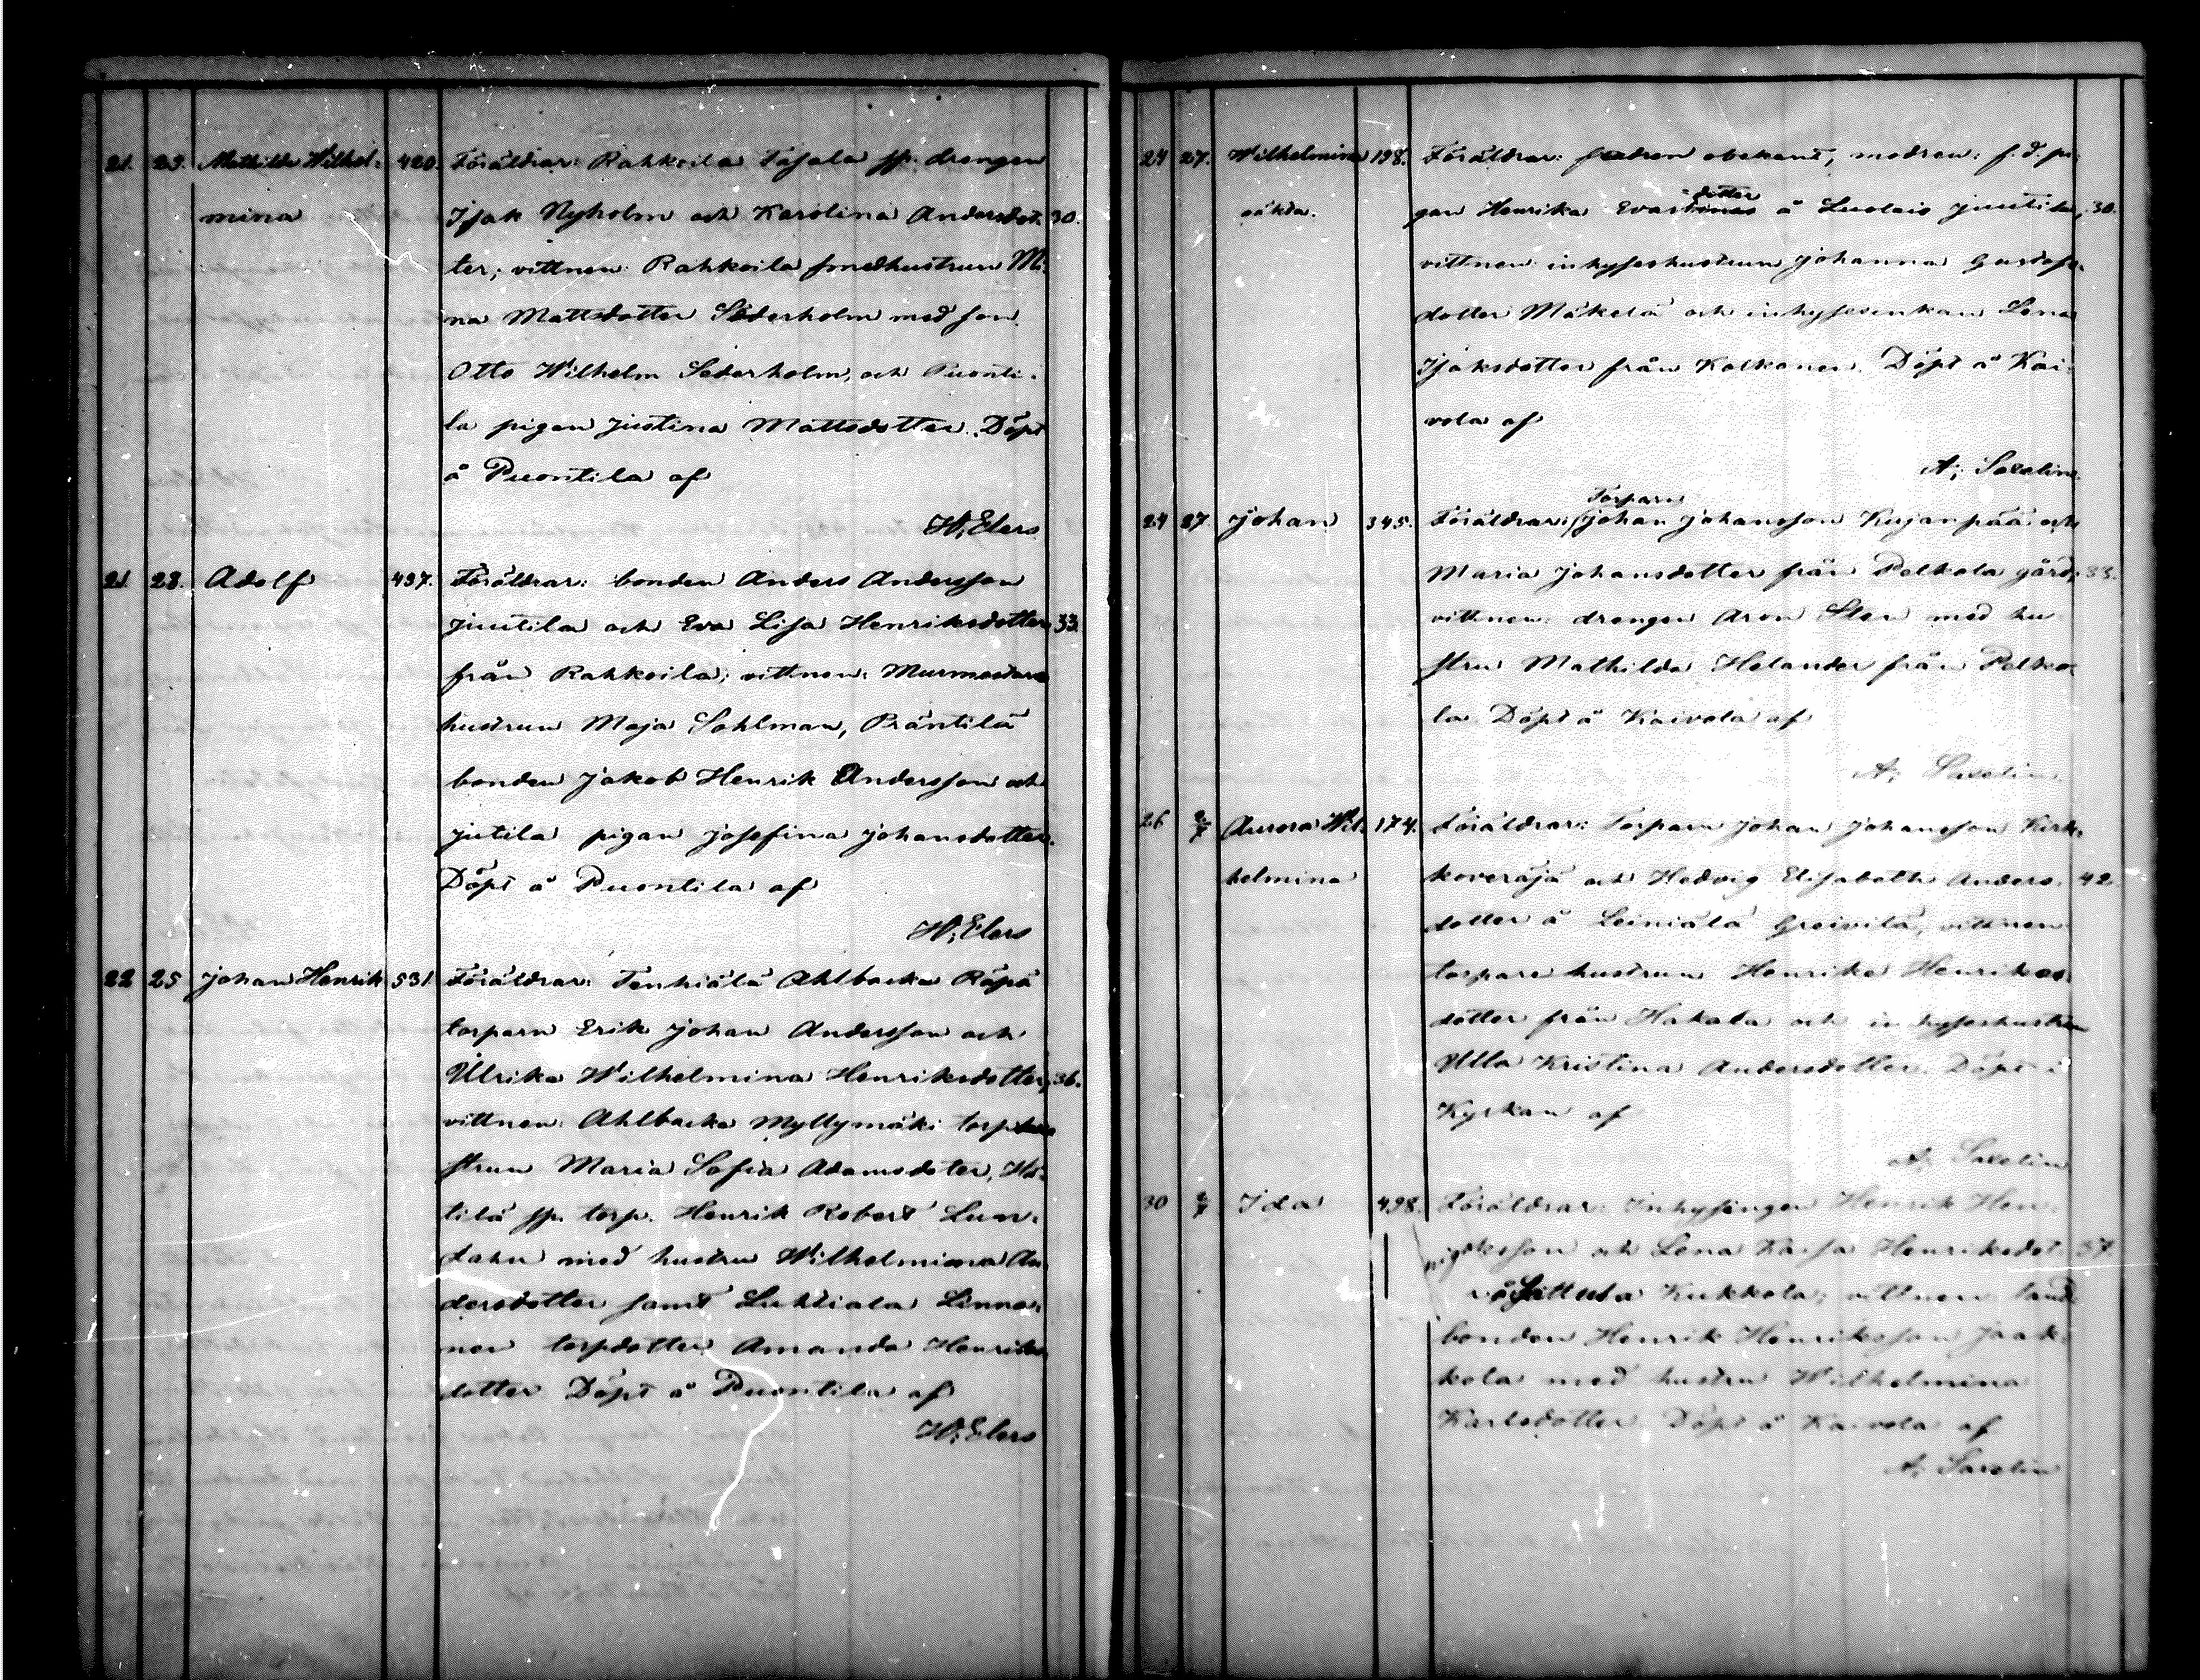 21. 23. Mathilda Wilhel- 420. Föräldrar: Rahkoila Tajala sp. drengen
mina Isak Nyholm och Karolina Andersdot- 30.
ter; vittnen: Rahkoila smedhustrun Mi-
na Mattsdotter Söderholm med son
Otto Wilhelm Söderholm, och Puonti-
la pigan Justina Mattsdotter. Döpt
å Puontila af
H; Elers
21. 28. Adolf 437. Föräldrar: bonden Anders Andersson
Juutila och Eva Lisa Henriksdotter 33.
från Rahkoila; vittnen: Murmestare
hustrun Maja Sahlman, Präntilä
bonden Jakob Henrik Andersson och
Jutila pigan Josefina Johansdotter.
Döpt å Puontila af
H; Elers
22 25 Johan Henrik 531 Föräldrar: Tenhiälä Ahlbacka Räpä
torparn Erik Johan Andersson och
Ulrika Wilhelmina Henriksdotter, 36.
vittnen: Ahlbacka Myllymäki torphu
strun Maria Sofia Adamsdoter, Hä-
tilä sp. torp. Henrik Robert Lun-
dahn med hustru Wilhelmina An
dersdotter samt Luhtiala Linna-
nen torpdotter Amanda Henriks
dotter Döpt å Puontila af
H; Elers
24 27. Wilhelmina 198. Föräldrar: fadren obekant, modren: f. d. pi-
oäkta. gan Henrika Evastinas dotter å Luolais Juutila, 30.
vittnen: inhyseshustrun Johanna Gustafs-
dotter Mäkelä och inhysesenkan Lena
Isaksdotter från Kolkanen. Döpt å Kai-
vola af
A; Saxelin
24 27 Johan 345. Föräldrar: Torparn Johan Johansson Kujanpää och
Maria Johansdotter från Pelkola gård; 33.
vittnen: drengen Aron Sten med hu
stru Mathilda Helander från Pelko-
la Döpt å Kaivola af
A; Saxelin
26 Aurora Wil- 174. Föräldrar: Torparn Johan Johansson Kirk-
helmina koveräjä och Hedvig Elisabeth Anders- 42.
dotter å Leiniälä Greivilä, vittnen
torpare hustrun Henrika Henriks-
dotter från Hakala och inhyseshustrun
Ulla Kristina Andersdotter. Döpt i
Kyrkan af
A; Saxelin
30 Ida 498. Föräldrar: Inhysingen Henrik Hen-
riksson och Lena Kaisa Henriksdot- 37.
å Kukkola; vittnen: land
bonden Henrik Henriksson Jaak-
kola med hustru Wilhelmina
Karlsdotter Döpt å Kaivola af
A; Saxelin